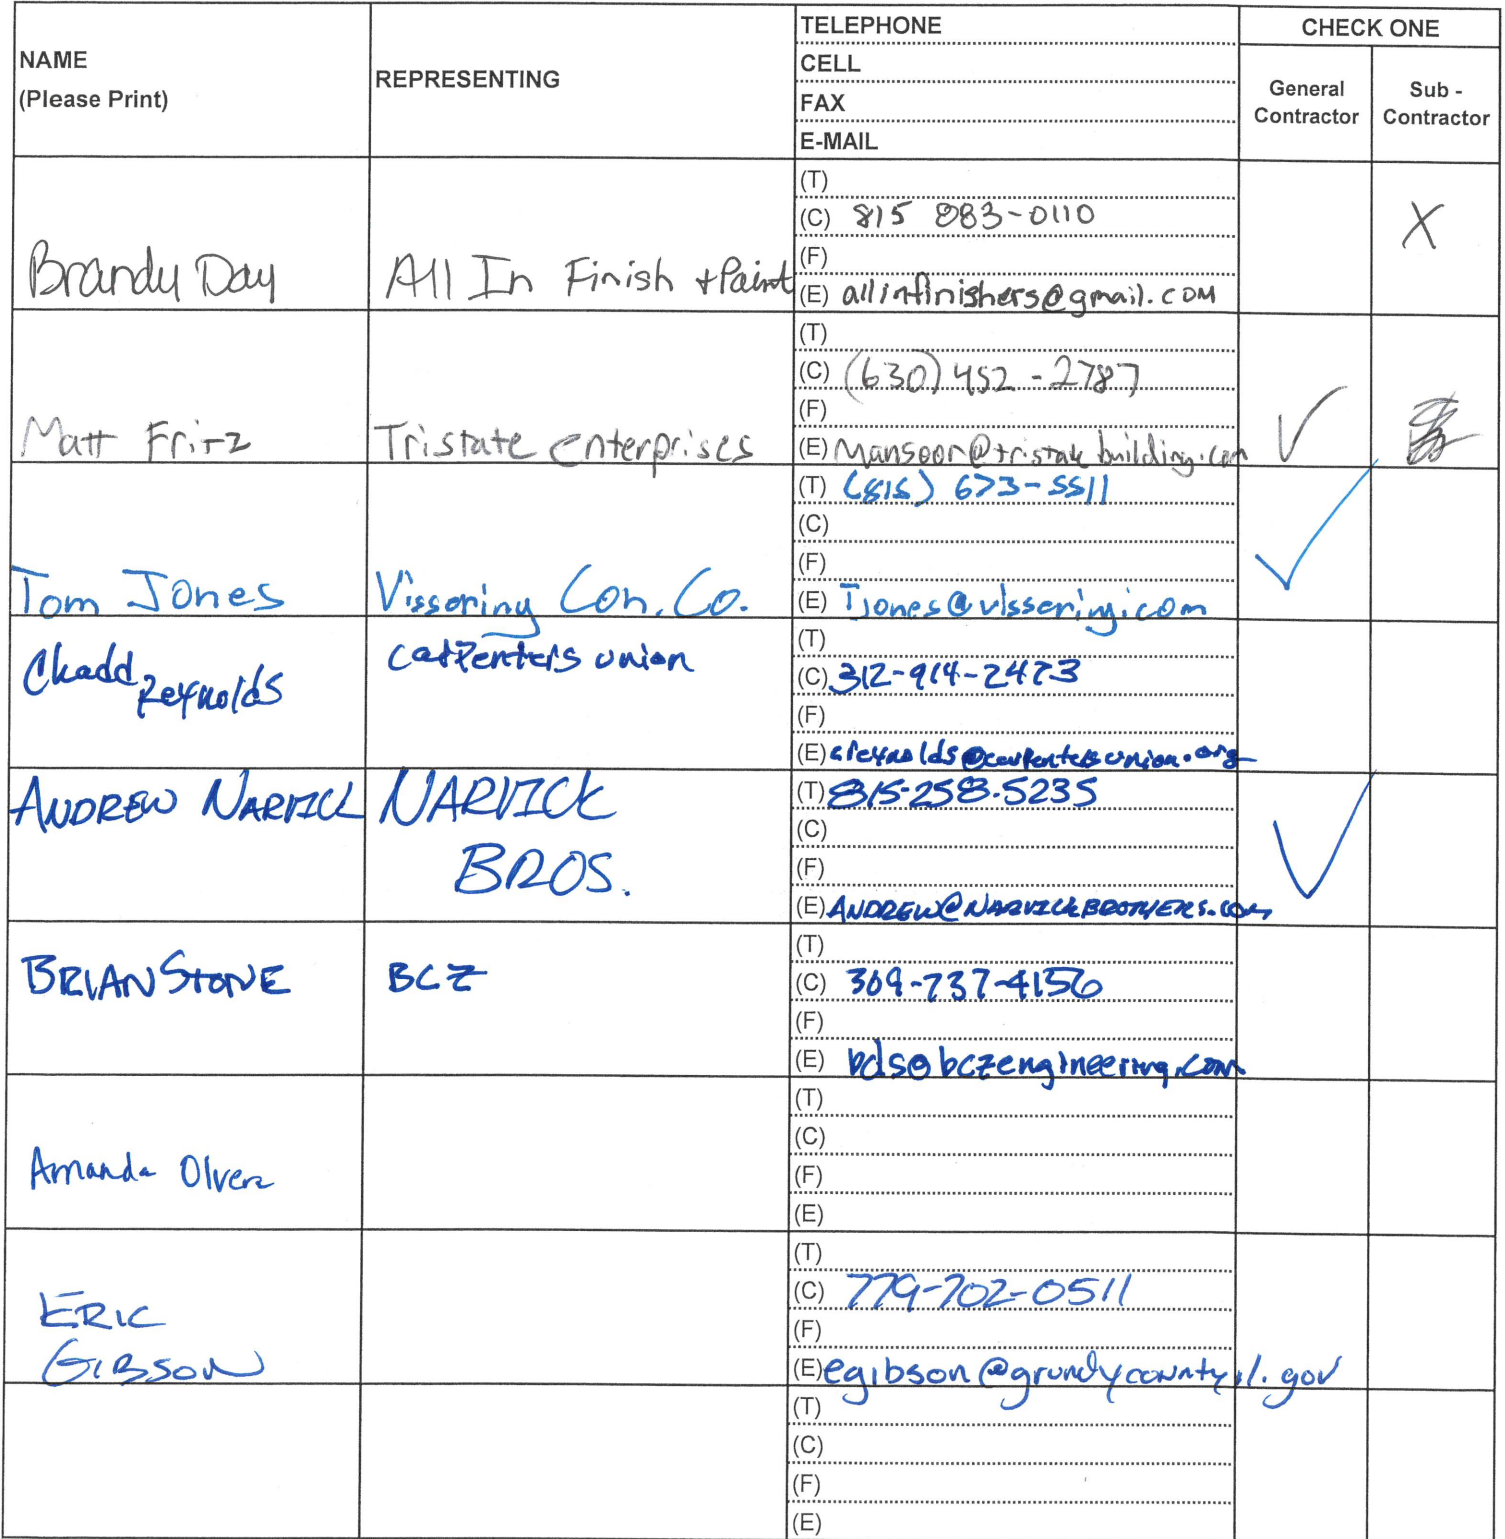 NAME
(Please Print)
REPRESENTING
TELEPHONE
CELL
FAX
E-MAIL
CHECK ONE
General
Contractor
Sub -
Contractor
Brandy Day
All In Finish + Paint
(T)
(C) 815 883-0110
(F)
(E) allinfinishers@gmail.com
X
Matt Fritz
Tristate enterprises
(T)
(C) (630) 452-2787
(F)
(E) Mansoor@tristatebuilding.com
✓
Tom Jones
Vissering Con. Co.
(T) (815) 673-5511
(C)
(F)
(E) Tjones@vissering.com
✓
Chadd
Reynolds
carpenters union
(T)
(C) 312-914-2473
(F)
(E) creynolds@carpentersunion.org
ANDREW NARVICK
NARVICK
BROS.
(T) 815-258-5235
(C)
(F)
(E) ANDREW@NARVICKBROTHERS.COM
✓
BRIAN STONE
BCZ
(T)
(C) 309-737-4156
(F)
(E) bds@bczengineering.com
Amanda Olvera
(T)
(C)
(F)
(E)
ERIC
GIBSON
(T)
(C) 779-702-0511
(F)
(E) egibson@grundycountyil.gov
(T)
(C)
(F)
(E)